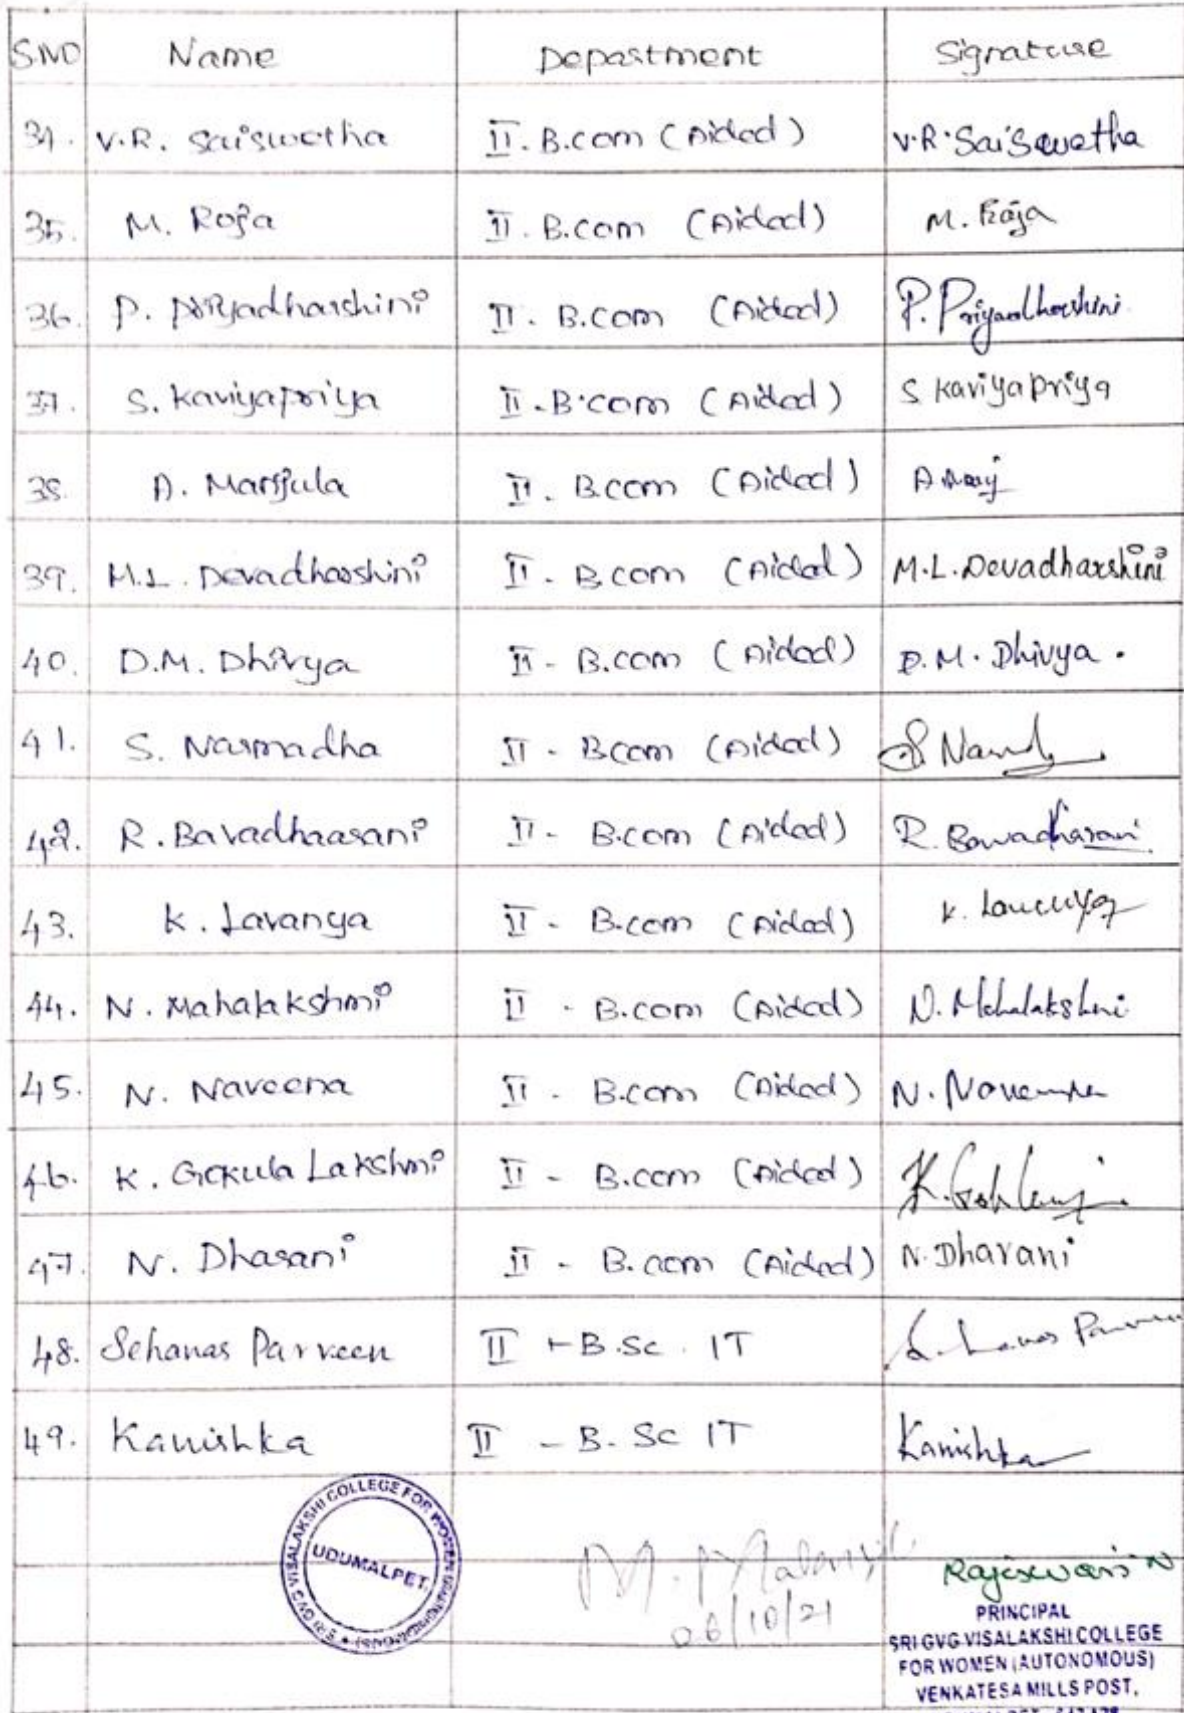 S.NO Name Department Signature
34. V.R. Saiswetha II. B.com (Aided) V.R. Saiswetha
35. M. Roja II. B.com (Aided) M. Roja
36. P. Priyadharshini II. B.com (Aided) P. Priyadharshini
37. S. Kaviyapriya II. B.com (Aided) S Kaviyapriya
38. A. Manjula II. B.com (Aided)
39. M.L. Devadharshini II - B.com (Aided) M.L. Devadharshini
40. D.M. Dhivya II - B.com (Aided) D.M. Dhivya.
41. S. Narmadha II - B.com (Aided)
42. R. Bavadhaarani II - B.com (Aided) R. Bawadharani
43. K. Lavanya II - B.com (Aided) K. Lavanya
44. N. Mahalakshmi II - B.com (Aided) N. Mahalakshmi
45. N. Naveena II - B.com (Aided) N. Naveena
46. K. Gokula Lakshmi II - B.com (Aided)
47. N. Dharani II - B.com (Aided) N. Dharani
48. Sehanas Parveen II - B.Sc. IT
49. Kanishka II - B. Sc IT Kanishka
SRI GVG VISALAKSHI COLLEGE FOR WOMEN (AUTONOMOUS)
UDUMALPET.
26/10/21
Rajeswari N
PRINCIPAL
SRI GVG VISALAKSHI COLLEGE
FOR WOMEN (AUTONOMOUS)
VENKATESA MILLS POST,